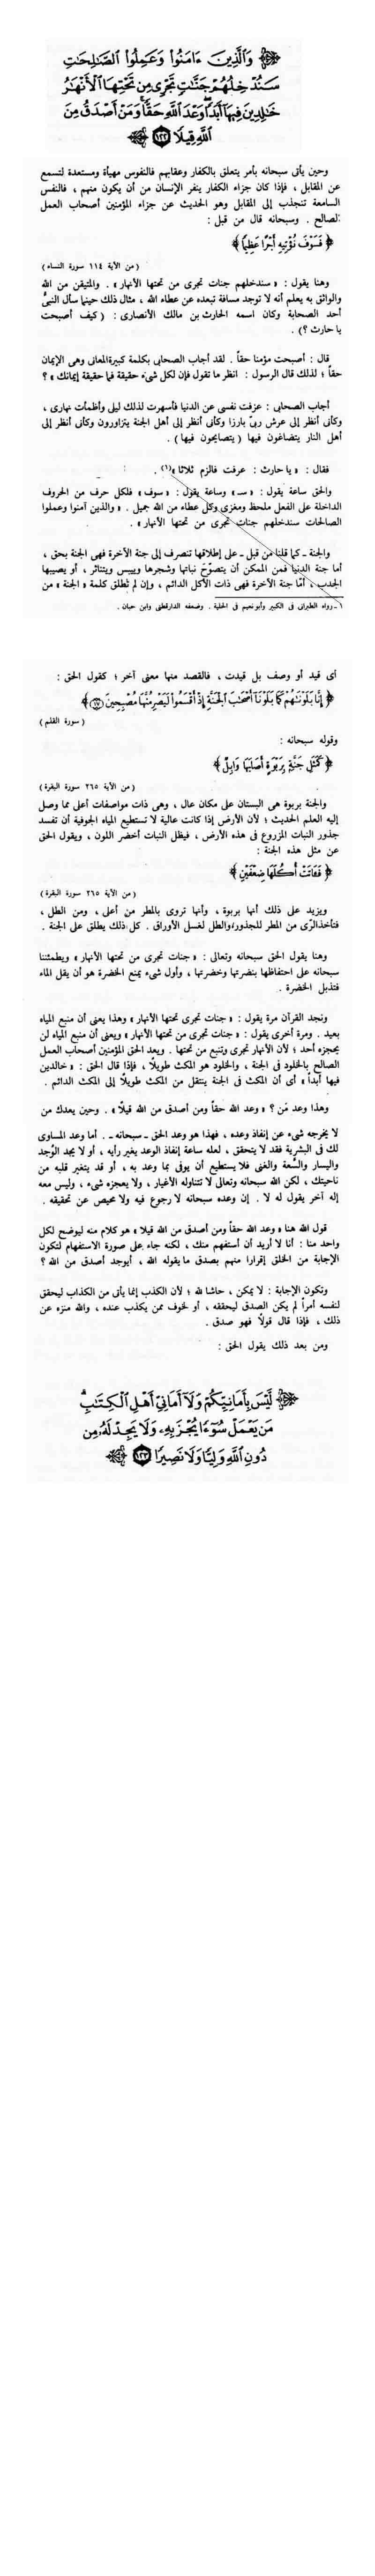 وَالَّذِينَ ءَامَنُوا۟ وَعَمِلُوا۟ الصَّـٰلِحَـٰتِ
سَنُدْخِلُهُمْ جَنَّـٰتٍ تَجْرِى مِن تَحْتِهَا الْأَنْهَـٰرُ
خَـٰلِدِينَ فِيهَآ أَبَدًا وَعْدَ اللَّهِ حَقًّا وَمَنْ أَصْدَقُ مِنَ
اللَّهِ قِيلًا ١٢٢
وحين يأتى سبحانه بأمر يتعلق بالكفار وعقابهم فالنفوس مهيأة ومستعدة لتسمع
عن المقابل ، فإذا كان جزاء الكفار ينفر الإنسان من أن يكون منهم ، فالنفس
السامعة تنجذب إلى المقابل وهو الحديث عن جزاء المؤمنين أصحاب العمل
الصالح . وسبحانه قال من قبل :
﴿ فَسَوْفَ نُؤْتِيهِ أَجْرًا عَظِيمًا ﴾
( من الآية ١١٤ سورة النساء )
وهنا يقول : « سندخلهم جنات تجرى من تحتها الأنهار » . والمتيقن من الله
والواثق به يعلم أنه لا توجد مسافة تبعده عن عطاء الله ، مثال ذلك حينما سأل النبىُّ
أحد الصحابة وكان اسمه الحارث بن مالك الأنصارى : ( كيف أصبحت
يا حارث ؟ ) .
قال : أصبحت مؤمنا حقاً . لقد أجاب الصحابى بكلمة كبيرة المعانى وهى الإيمان
حقاً ؛ لذلك قال الرسول : انظر ما تقول فإن لكل شىء حقيقة فما حقيقة إيمانك » ؟
أجاب الصحابى : عزفت نفسى عن الدنيا فأسهرت لذلك ليلى وأظمأت نهارى ،
وكأنى أنظر إلى عرش ربىّ بارزا وكأنى أنظر إلى أهل الجنة يتزاورون وكأنى أنظر إلى
أهل النار يتضاغون فيها ( يتصايحون فيها ) .
فقال : « يا حارث : عرفت فالزم ثلاثا »(١) .
والحق ساعة يقول : « سـ » وساعة يقول : « سوف » فلكل حرف من الحروف
الداخلة على الفعل ملحظ ومغزى وكل عطاء من الله جميل . « والذين آمنوا وعملوا
الصالحات سندخلهم جنات تجرى من تحتها الأنهار » .
والجنة ـ كما قلنا من قبل ـ على إطلاقها تنصرف إلى جنة الآخرة فهى الجنة بحق ،
أما جنة الدنيا فمن الممكن أن يتصوّح نباتها وشجرها وييبس ويتناثر ، أو يصيبها
الجدب ، أمّا جنة الآخرة فهى ذات الأكل الدائم ، وإن لم تُطلق كلمة « الجنة » من
١ ـ رواه الطبرانى فى الكبير وأبو نعيم فى الحلية . وضعفه الدارقطنى وابن حبان .
أى قيد أو وصف بل قيدت ، فالقصد منها معنى آخر ؛ كقول الحق :
﴿ إِنَّا بَلَوْنَـٰهُمْ كَمَا بَلَوْنَآ أَصْحَـٰبَ الْجَنَّةِ إِذْ أَقْسَمُوا۟ لَيَصْرِمُنَّهَا مُصْبِحِينَ ١٧ ﴾
( سورة القلم )
وقوله سبحانه :
﴿ كَمَثَلِ جَنَّةٍۭ بِرَبْوَةٍ أَصَابَهَا وَابِلٌ ﴾
( من الآية ٢٦٥ سورة البقرة )
والجنة بربوة هى البستان على مكان عال ، وهى ذات مواصفات أعلى مما وصل
إليه العلم الحديث ؛ لأن الأرض إذا كانت عالية لا تستطيع المياه الجوفية أن تفسد
جذور النبات المزروع فى هذه الأرض ، فيظل النبات أخضر اللون ، ويقول الحق
عن مثل هذه الجنة :
﴿ فَـَٔاتَتْ أُكُلَهَا ضِعْفَيْنِ ﴾
( من الآية ٢٦٥ سورة البقرة )
ويزيد على ذلك أنها بربوة ، وأنها تروى بالمطر من أعلى ، ومن الطل ،
فتأخذ الرّى من المطر للجذور والطل لغسل الأوراق . كل ذلك يطلق على الجنة .
وهنا يقول الحق سبحانه وتعالى : « جنات تجرى من تحتها الأنهار » ويطمئننا
سبحانه على احتفاظها بنضرتها وخضرتها ، وأول شىء يمنع الخضرة هو أن يقل الماء
فتذبل الخضرة .
ونجد القرآن مرة يقول : « جنات تجرى تحتها الأنهار » وهذا يعنى أن منبع المياه
بعيد . ومرة أخرى يقول : « جنات تجرى من تحتها الأنهار » ويعنى أن منبع المياه لن
يحجزه أحد ؛ لأن الأنهار تجرى وتنبع من تحتها . ويعد الحق المؤمنين أصحاب العمل
الصالح بالخلود فى الجنة ، والخلود هو المكث طويلًا ، فإذا قال الحق : « خالدين
فيها أبداً » أى أن المكث فى الجنة ينتقل من المكث طويلًا إلى المكث الدائم .
وهذا وعد مَن ؟ « وعد الله حقاً ومن أصدق من الله قيلًا » . وحين يعدك من
لا يخرجه شىء عن إنفاذ وعده ، فهذا هو وعد الحق ـ سبحانه ـ . أما وعد المساوى
لك فى البشرية فقد لا يتحقق ، لعله ساعة إنفاذ الوعد يغير رأيه ، أو لا يجد الوُجد
واليسار والسَّعة والغنى فلا يستطيع أن يوفى بما وعد به ، أو قد يتغير قلبه من
ناحيتك ، لكن الله سبحانه وتعالى لا تتناوله الأغيار ، ولا يعجزه شىء ، وليس معه
إله آخر يقول له لا . إن وعده سبحانه لا رجوع فيه ولا محيص عن تحقيقه .
قول الله هنا « وعد الله حقاً ومن أصدق من الله قيلا » هو كلام منه ليوضح لكل
واحد منا : أنا لا أريد أن أستفهم منك ، لكنه جاء على صورة الاستفهام لتكون
الإجابة من الخلق إقرارا منهم بصدق ما يقوله الله ، أيوجد أصدق من الله ؟
وتكون الإجابة : لا يمكن ، حاشا لله ؛ لأن الكذب إنما يأتى من الكذاب ليحقق
لنفسه أمراً لم يكن الصدق ليحققه ، أو لخوف ممن يكذب عنده ، والله منزه عن
ذلك ، فإذا قال قولًا فهو صدق .
ومن بعد ذلك يقول الحق :
لَّيْسَ بِأَمَانِيِّكُمْ وَلَآ أَمَانِىِّ أَهْلِ الْكِتَـٰبِ
مَن يَعْمَلْ سُوٓءًا يُجْزَ بِهِۦ وَلَا يَجِدْ لَهُۥ مِن
دُونِ اللَّهِ وَلِيًّا وَلَا نَصِيرًا ١٢٣